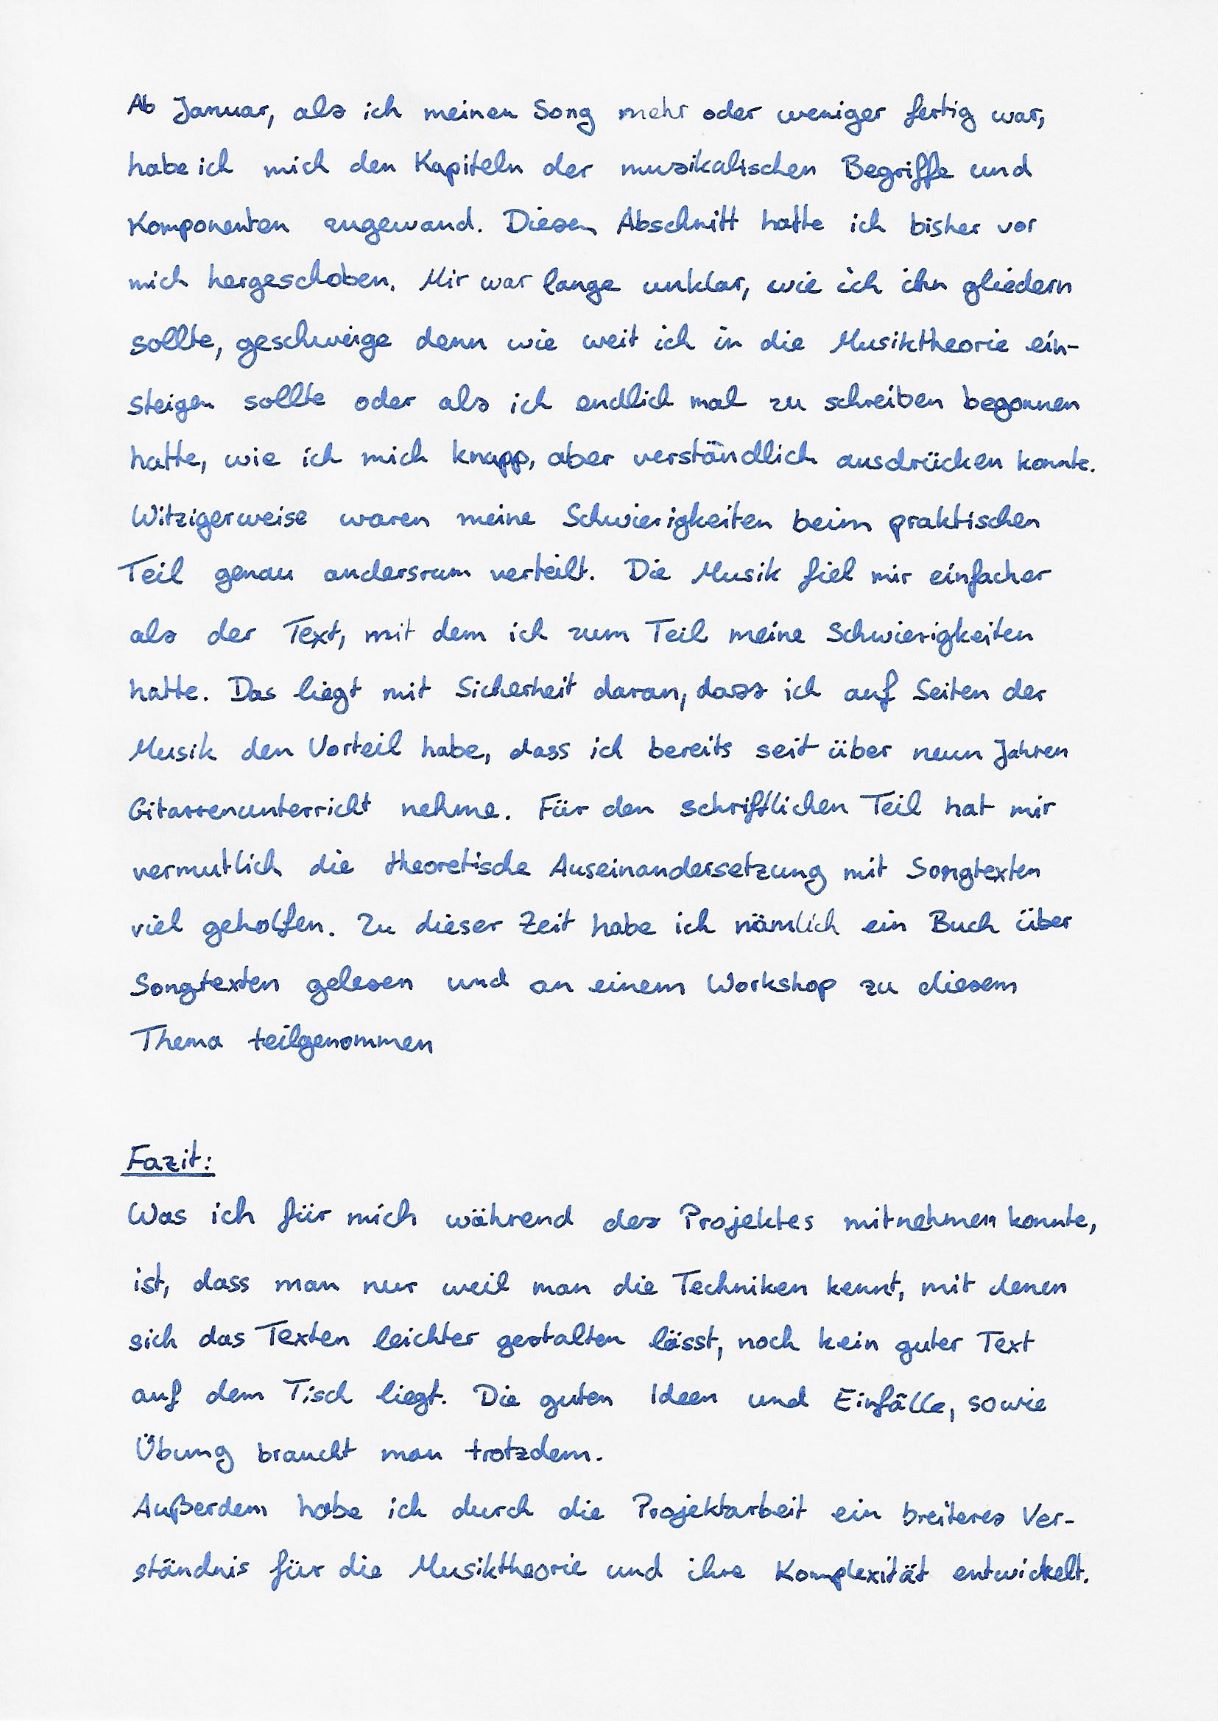 Ab Januar, als ich meinen Song mehr oder weniger fertig war,
habe ich mich den Kapiteln der musikalischen Begriffe und
Komponenten zugewand. Diesen Abschnitt hatte ich bisher vor
mich hergeschoben. Mir war lange unklar, wie ich ihn gliedern
sollte, geschweige denn wie weit ich in die Musiktheorie ein-
steigen sollte oder als ich endlich mal zu schreiben begonnen
hatte, wie ich mich knapp, aber verständlich ausdrücken konnte.
Witzigerweise waren meine Schwierigkeiten beim praktischen
Teil genau andersrum verteilt. Die Musik fiel mir einfacher
als der Text, mit dem ich zum Teil meine Schwierigkeiten
hatte. Das liegt mit Sicherheit daran, dass ich auf Seiten der
Musik den Vorteil habe, dass ich bereits seit über neun Jahren
Gitarrenunterricht nehme. Für den schriftlichen Teil hat mir
vermutlich die theoretische Auseinandersetzung mit Songtexten
viel geholfen. Zu dieser Zeit habe ich nämlich ein Buch über
Songtexten gelesen und an einem Workshop zu diesem
Thema teilgenommen
Fazit:
Was ich für mich während des Projektes mitnehmen konnte,
ist, dass man nur weil man die Techniken kennt, mit denen
sich das Texten leichter gestalten lässt, noch kein guter Text
auf dem Tisch liegt. Die guten Ideen und Einfälle, sowie
Übung braucht man trotzdem.
Außerdem habe ich durch die Projektarbeit ein breiteres Ver-
ständnis für die Musiktheorie und ihre Komplexität entwickelt.